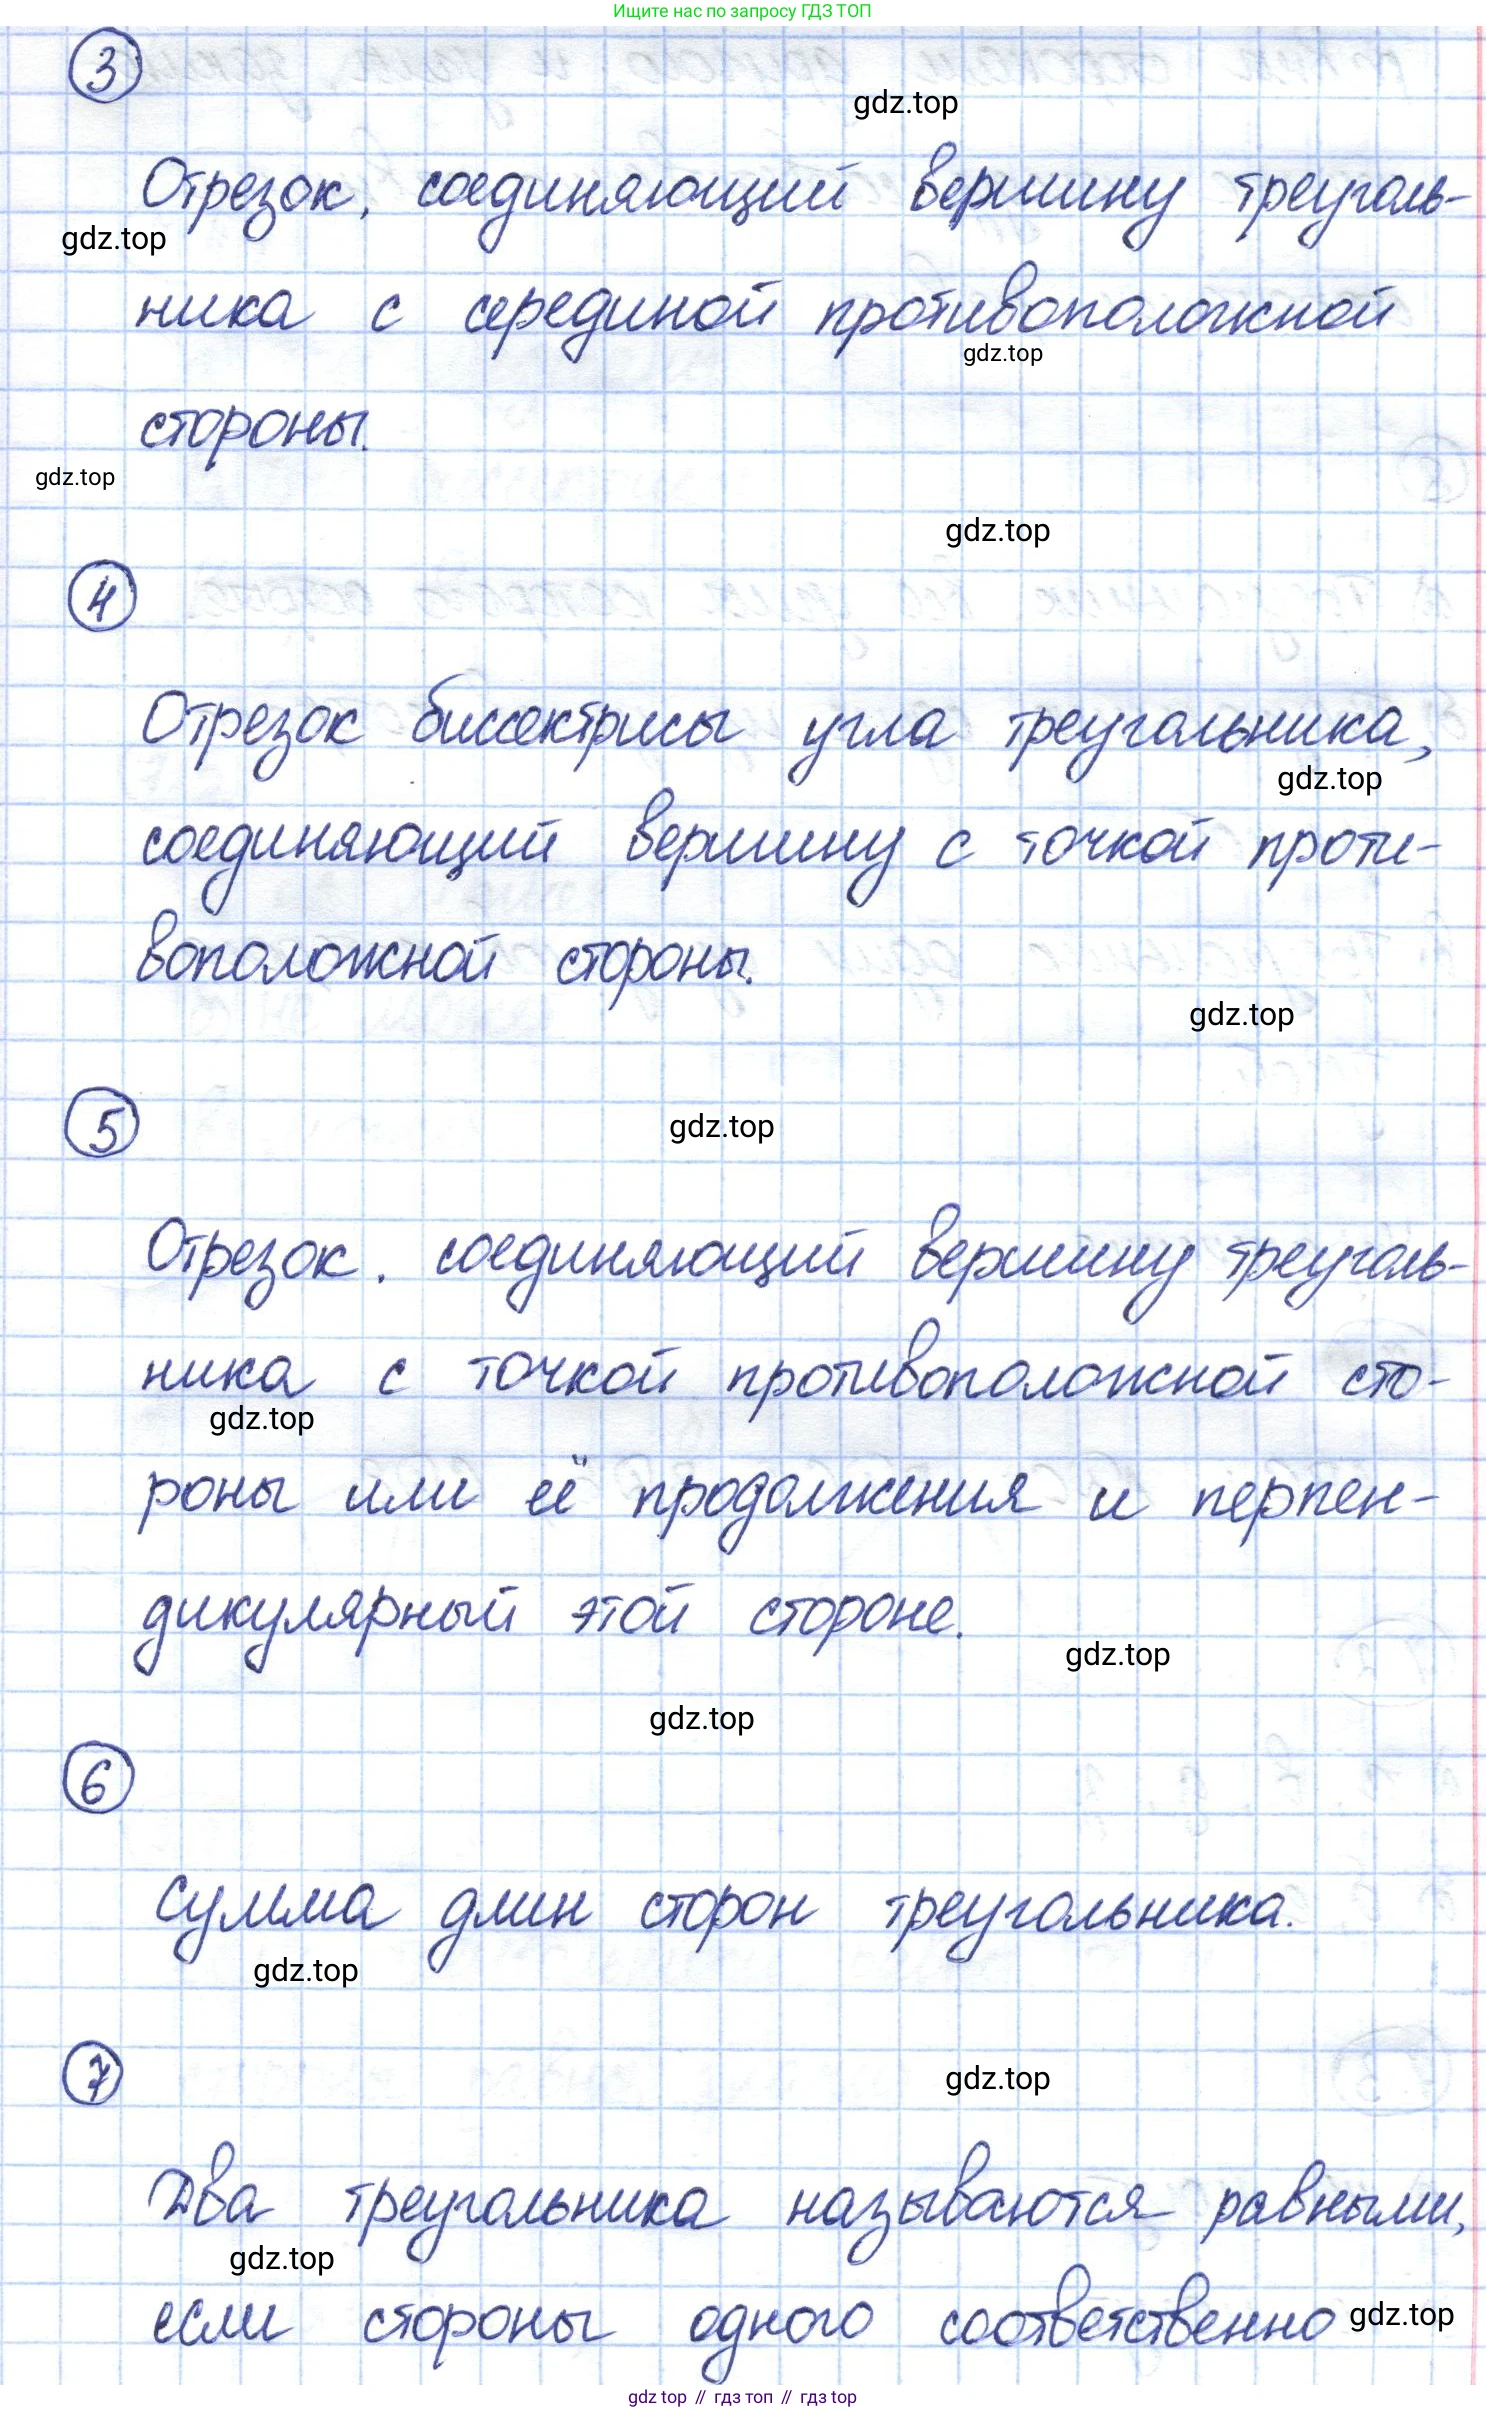 Ищите нас по запросу ГДЗ ТОП
3
gdz.top
Отрезок, соединяющий вершину треуголь-
gdz.top
ника с серединой противоположной
gdz.top
стороны.
gdz.top
gdz.top
4
Отрезок биссектрисы угла треугольника,
gdz.top
соединяющий вершину с точкой проти-
воположной стороны.
gdz.top
5
gdz.top
Отрезок, соединяющий вершину треуголь-
ника с точкой противоположной сто-
gdz.top
роны или её продолжения и перпен-
дикулярный этой стороне.
gdz.top
gdz.top
6
Сумма длин сторон треугольника.
gdz.top
7
gdz.top
Два треугольника называются равными,
gdz.top
если стороны одного соответственно
gdz.top
gdz top // гдз топ // gdz top